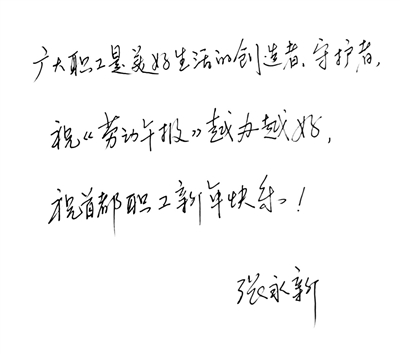 广大职工是美好生活的创造者、守护者，
祝《劳动午报》越办越好，
祝首都职工新年快乐！
张永新